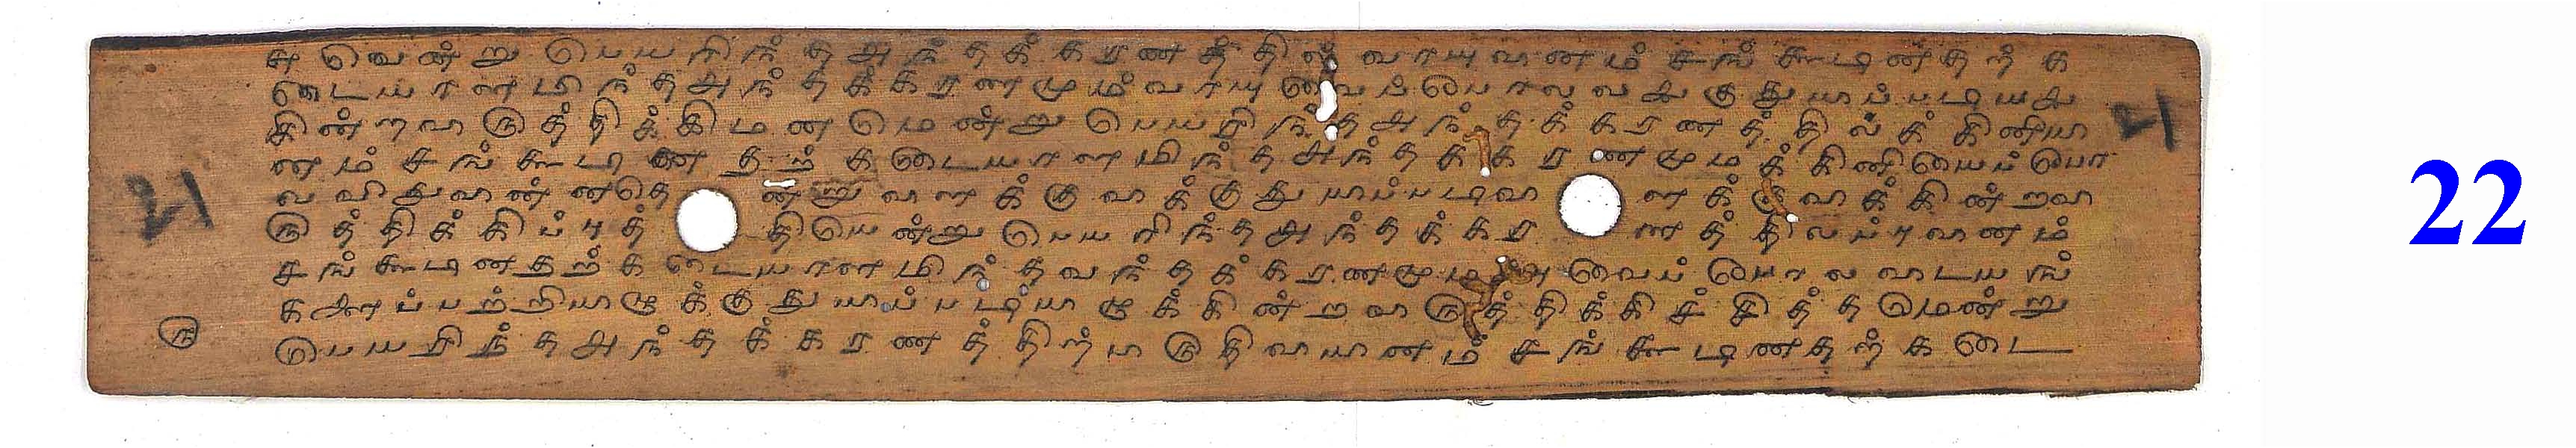 சுவென்று பெயரிந்த அந்தக்கரணத்தில் வாயுவானம் சங்கூடினதற்க
டையாளமிந்த அந்தக்கரணமும் வாயுவைப்போலவ
கின்றவாருத்திக்கிமனமென்று பெயரிந்த அந்தக்கரணத்தில்க்கினியா
னம் சங்கூடிணதற்கடையாளமிந்த அந்தக்கரணமுமக்கினியைப்போ
லவிதுவான்னதெ ன்றுவாளக்குவாக்குதுயாப்படிவா ளக்குவாக்கின்றவா
ருத்திக்கிப்புத் தியென்று பெயரிந்த அந்தக்கர ணத்திலப்புவானம்
சங்கூடினதற்கடையாளமிந்தவந்தக்கரணமும வைப்போலவாடயங்
களைப்பற்றியாளுக்குதுயாப்படியாளுக்கின்றவாருத்திக்கிச்சித்தமென்று
பெயரிந்த அந்தக்கரணத்திற்பாருதிவாயானம் சங்கூடிணதற்கடை
ரு
21
21
22